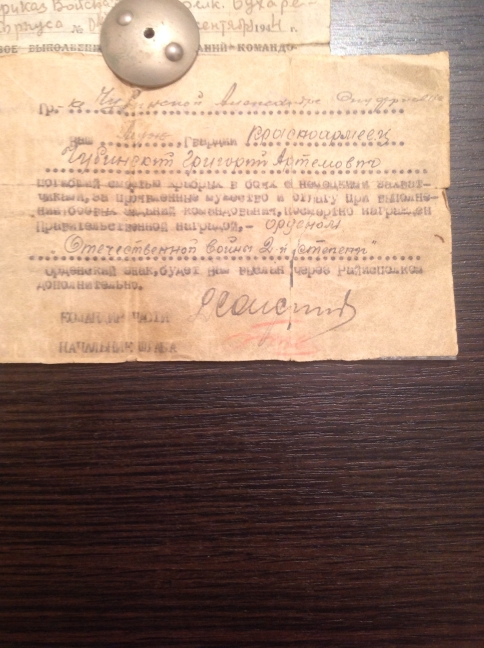 приказ Войска
№ сентября 194
ВЫПОЛНЕНИЕ ЗАДАНИЙ КОМАНДО-
Гр-ка Чубинской Александре
Ваш Гвардии Красноармеец
Чубинский Григорий Артемович
погибший смертью храбрых в боях с немецкими захват-
чиками, за проявленные мужество и отвагу при выполне-
нии боевых заданий командования, посмертно награжден
Правительственной наградой,- Орденом
Отечественной войны 2-й степени"
Орденский знак, будет Вам выслан через Райисполком
дополнительно.
КОМАНДИР ЧАСТИ
НАЧАЛЬНИК ШТАБА